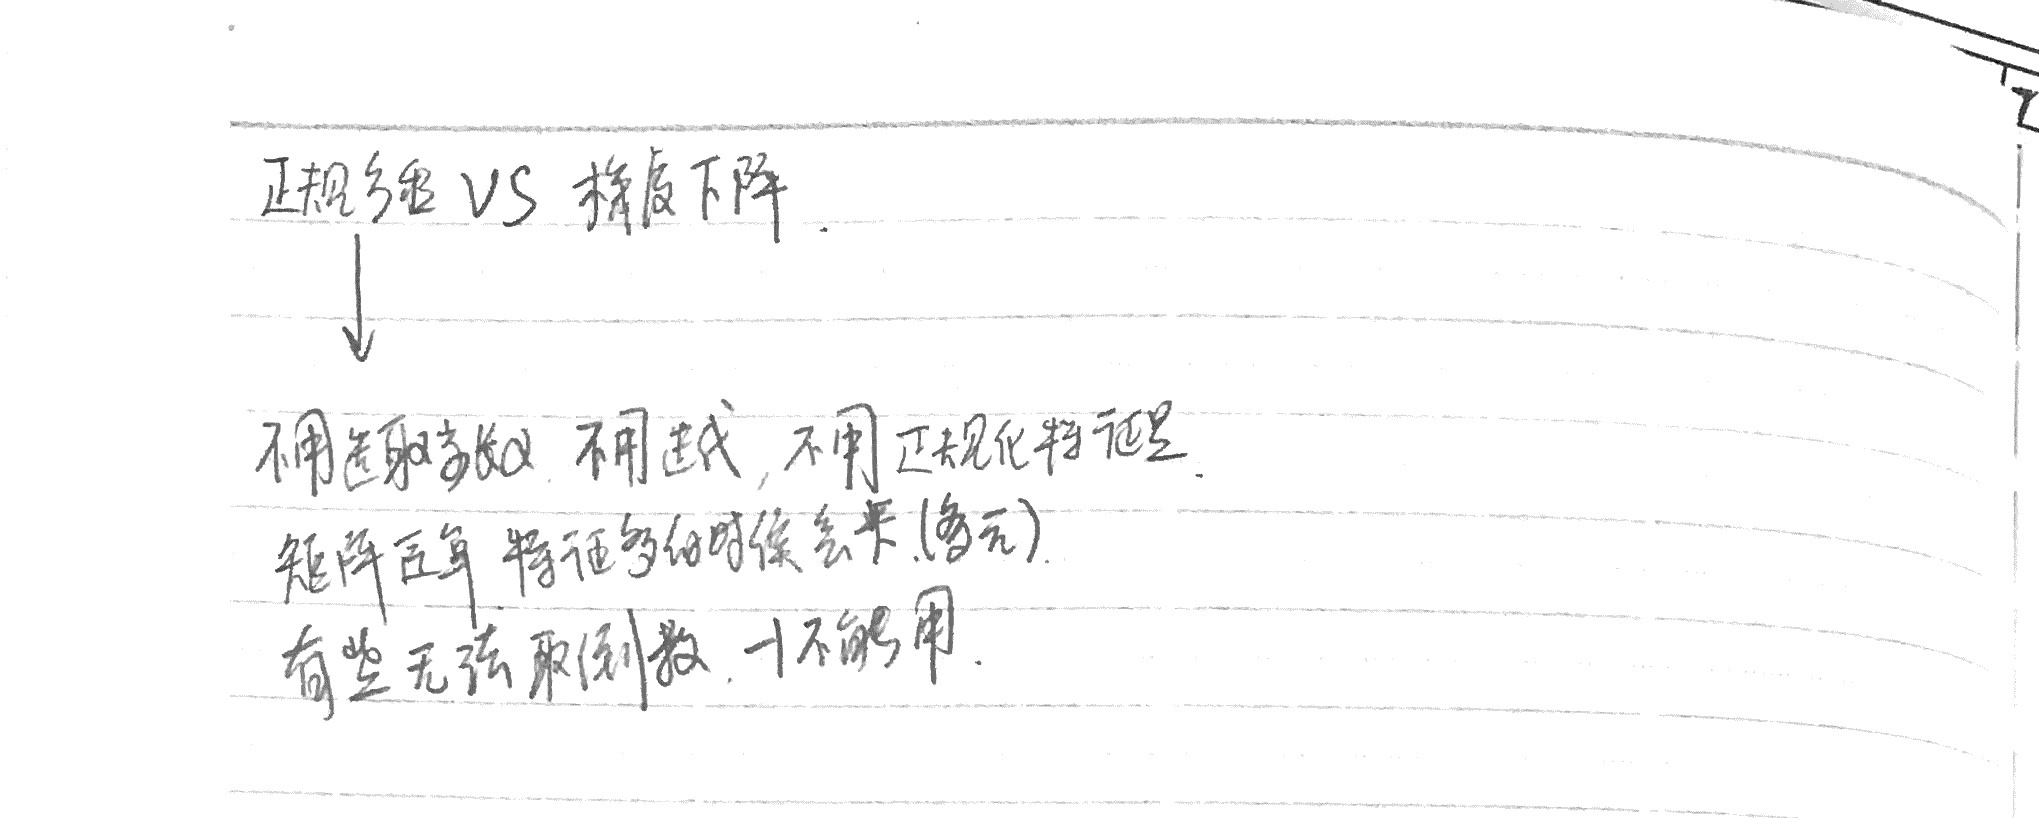 正规方程 VS 梯度下降.
不用选取参数. 不用迭代, 不用正规化特征量.
矩阵运算 特征多的时候会累.(多元).
有些无法取倒数. 不能用.